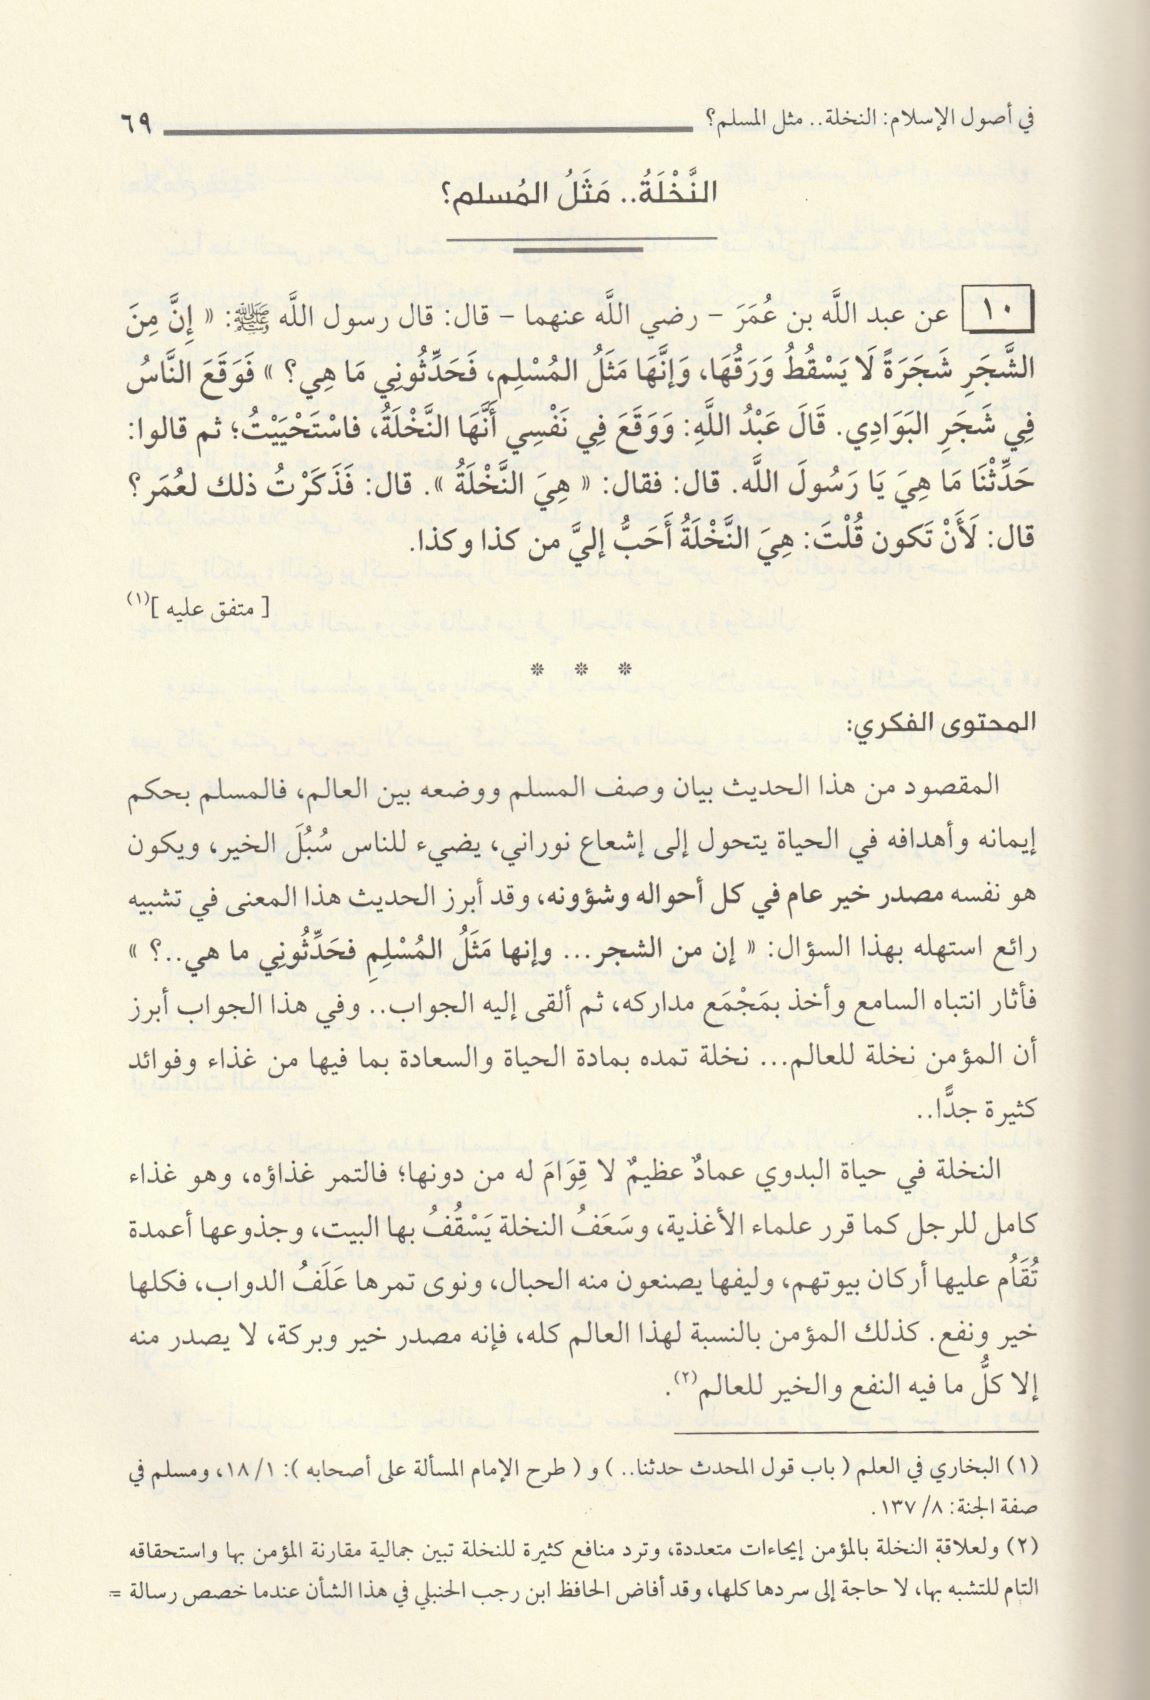 في أصول الإسلام: النخلة.. مثل المسلم؟ ٦٩
النَّخْلَةُ.. مَثَلُ المُسلم؟
١٠ عن عبد اللَّه بن عُمَرَ – رضي اللَّه عنهما – قال: قال رسول اللَّه ﷺ: « إِنَّ مِنَ
الشَّجَرِ شَجَرَةً لَا يَسْقُطُ وَرَقُهَا، وَإِنَّهَا مَثَلُ المُسْلِمِ، فَحَدِّثُونِي مَا هِي؟ » فَوَقَعَ النَّاسُ
فِي شَجَرِ البَوَادِي. قَالَ عَبْدُ اللَّهِ: وَوَقَعَ فِي نَفْسِي أَنَّهَا النَّخْلَةُ، فاسْتَحْيَيْتُ؛ ثم قالوا:
حَدِّثْنَا مَا هِيَ يَا رَسُولَ اللَّه. قال: فقال: « هِيَ النَّخْلَةُ ». قال: فَذَكَرْتُ ذلك لعُمَر؟
قال: لَأَنْ تَكون قُلْتَ: هِيَ النَّخْلَةُ أَحَبُّ إليَّ من كذا وكذا.
[ متفق عليه ](١)
* * *
المحتوى الفكري:
المقصود من هذا الحديث بيان وصف المسلم ووضعه بين العالم، فالمسلم بحكم
إيمانه وأهدافه في الحياة يتحول إلى إشعاع نوراني، يضيء للناس سُبُلَ الخير، ويكون
هو نفسه مصدر خير عام في كل أحواله وشؤونه، وقد أبرز الحديث هذا المعنى في تشبيه
رائع استهله بهذا السؤال: « إن من الشجر... وإنها مَثَلُ المُسْلِمِ فحَدِّثُونِي ما هي..؟ »
فأثار انتباه السامع وأخذ بمَجْمَع مداركه، ثم ألقى إليه الجواب.. وفي هذا الجواب أبرز
أن المؤمن نخلة للعالم... نخلة تمده بمادة الحياة والسعادة بما فيها من غذاء وفوائد
كثيرة جدًّا..
النخلة في حياة البدوي عمادٌ عظيمٌ لا قِوَامَ له من دونها؛ فالتمر غذاؤه، وهو غذاء
كامل للرجل كما قرر علماء الأغذية، وسَعَفُ النخلة يَسْقُفُ بها البيت، وجذوعها أعمدة
تُقَاُم عليها أركان بيوتهم، وليفها يصنعون منه الحبال، ونوى تمرها عَلَفُ الدواب، فكلها
خير ونفع. كذلك المؤمن بالنسبة لهذا العالم كله، فإنه مصدر خير وبركة، لا يصدر منه
إلا كلُّ ما فيه النفع والخير للعالم(٢).
(١) البخاري في العلم ( باب قول المحدث حدثنا.. ) و ( طرح الإمام المسألة على أصحابه ): ١/ ١٨، ومسلم في
صفة الجنة: ٨/ ١٣٧.
(٢) ولعلاقة النخلة بالمؤمن إيحاءات متعددة، وترد منافع كثيرة للنخلة تبين جمالية مقارنة المؤمن بها واستحقاقه
التام للتشبه بها، لا حاجة إلى سردها كلها، وقد أفاض الحافظ ابن رجب الحنبلي في هذا الشأن عندما خصص رسالة =